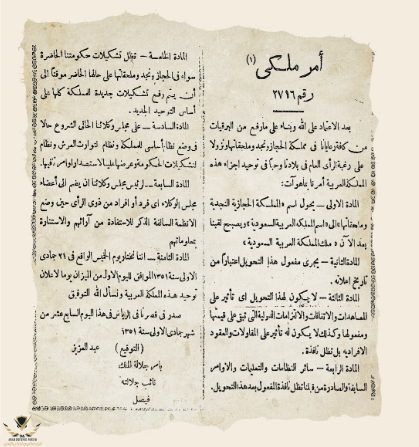 أمر ملكي (١)
رقم ٢٧١٦
بعد الاعتماد على الله وبناء على مارفع من البرقيات
من كافة رعايانا في مملكة الحجاز ونجد وملحقاتها ونزولا
على رغبة الرأي العام في بلادنا وحبا في توحيد اجزاء هذه
المملكة العربية أمرنا بما هو آت:
المادة الاولى — يحول اسم «المملكة الحجازية النجدية
وملحقاتها» الى اسم «المملكة العربية السعودية» ويصبح لقبنا
بعد الآن «ملك المملكة العربية السعودية»
المادة الثانية — يجري مفعول هذا التحويل اعتبارا من
تاريخ اعلانه.
المادة الثالثة — لا يكون لهذا التحويل اي تأثير على
المعاهدات والاتفاقات والالتزامات الدولية التي تبقى على قيمتها
ومفعولها وكذلك لا يكون له تأثير على المقاولات والعقود
الافرادية بل تظل نافذة.
المادة الرابعة — سائر النظامات والتعليمات والاوامر
السابقة والصادرة من قبلنا تظل نافذة المفعول بعد هذا التحويل.
المادة الخامسة — تظل تشكيلات حكومتنا الحاضرة
سواء في الحجاز ونجد وملحقاتها على حالها الحاضر موقتا الى
أن يتم وضع تشكيلات جديدة للمملكة كلها على
أساس التوحيد الجديد.
المادة السادسة — على مجلس وكلائنا الحالي الشروع حالا
في وضع نظام أساسي للمملكة ونظام لتوارث العرش ونظام
لتشكيلات الحكومة وعرضها علينا لاستصدار اوامرنا فيها.
المادة السابعة — لرئيس مجلس وكلائنا ان يضم الى أعضاء
مجلس الوكلاء اي فرد او افراد من ذوي الرأي حين وضع
الانظمة السالفة الذكر للاستفادة من آرائهم والاستنارة
بمعلوماتهم
المادة الثامنة — اننا نختار يوم الخميس الواقع في ٢١ جمادى
الاولى سنة ١٣٥١ الموافق لليوم الاول من الميزان يوما لاعلان
توحيد هذه المملكة العربية ونسأل الله التوفيق
صدر في قصرنا في الرياض في هذا اليوم السابع عشر من
شهر جمادى الاولى سنة ١٣٥١
(التوقيع) عبد العزيز
بامر جلالة الملك
نائب جلالته
فيصل